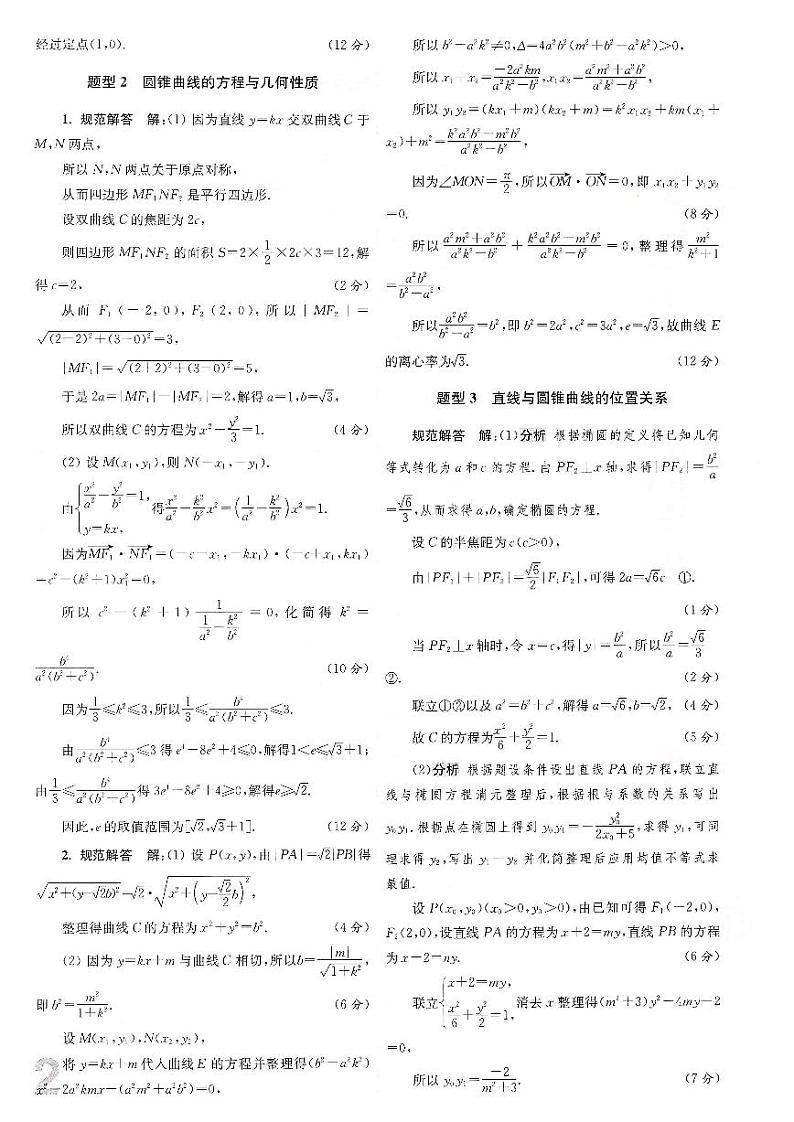 经过定点(1,0). (12分)
题型2 圆锥曲线的方程与几何性质
1. 规范解答 解:(1) 因为直线 y=kx 交双曲线C于
M,N两点,
所以 N,N 两点关于原点对称,
从而四边形 MF₁NF₂ 是平行四边形.
设双曲线C的焦距为 2c,
则四边形 MF₁NF₂ 的面积 S=2×1/2×2c×3=12,解
得c=2, (2分)
从而 F₁(-2,0), F₂(2,0), 所以|MF₂|=
√((2-2)²+(3-0)²)=3,
|MF₁|=√((2+2)²+(3-0)²)=5,
于是 2a=|MF₁|-|MF₂|=2,解得 a=1,b=√3,
所以双曲线C的方程为 x²-y²/3=1. (4分)
(2) 设 M(x₁,y₁),则 N(-x₁,-y₁).
由{x²/a²-y²/b²=1, y=kx, 得x²/a²-k²/b² x²=(1/a²-k²/b²)x²=1.
因为MF₁·NF₁=(-c-x₁,-kx₁)·(-c+x₁,kx₁)
=c²-(k²+1)x₁²=0,
所以 c²-(k²+1) 1/(1/a²-k²/b²)=0, 化简得 k²=
b⁴/(a²(b²+c²)). (10分)
因为1/3≤k²≤3,所以1/3≤b⁴/(a²(b²+c²))≤3.
由b⁴/(a²(b²+c²))≤3 得 e⁴-8e²+4≤0,解得1<e≤√3+1;
由1/3≤b⁴/(a²(b²+c²))得 3e⁴-8e²+4≥0,解得e≥√2.
因此,e的取值范围为[√2,√3+1]. (12分)
2. 规范解答 解:(1) 设 P(x,y),由|PA|=√2|PB|得
√(x²+(y-√2b)²)=√2·√(x²+(y-√2/2 b)²),
整理得曲线C的方程为 x²+y²=b². (4分)
(2) 因为 y=kx+m 与曲线C相切,所以b=|m|/√(1+k²),
即 b²=m²/(1+k²). (6分)
设 M(x₁,y₁),N(x₂,y₂),
将 y=kx+m 代入曲线E的方程并整理得(b²-a²k²)
x²-2a²kmx-(a²m²+a²b²)=0,
2
所以 b²-a²k²≠0,Δ=4a²b²(m²+b²-a²k²)>0,
所以 x₁+x₂=-2a²km/(a²k²-b²),x₁x₂=(a²m²+a²b²)/(a²k²-b²),
所以 y₁y₂=(kx₁+m)(kx₂+m)=k²x₁x₂+km(x₁+
x₂)+m²=(k²a²b²-m²b²)/(a²k²-b²),
因为∠MON=π/2,所以OM·ON=0,即 x₁x₂+y₁y₂
=0. (8分)
所以 (a²m²+a²b²)/(a²k²-b²)+(k²a²b²-m²b²)/(a²k²-b²)=0,整理得m²/(k²+1)
=a²b²/(b²-a²),
所以a²b²/(b²-a²)=b²,即 b²=2a²,c²=3a²,e=√3,故曲线E
的离心率为√3. (12分)
题型3 直线与圆锥曲线的位置关系
规范解答 解:(1)分析 根据椭圆的定义将已知几何
等式转化为a和c的方程.由PF₂⊥x轴,求得|PF₂|=b²/a
=√6/3,从而求得a,b,确定椭圆的方程.
设C的半焦距为c(c>0),
由|PF₁|+|PF₂|=√6/2|F₁F₂|,可得 2a=√6c ①.
(1分)
当 PF₂⊥x 轴时,令 x=c,得|y|=b²/a,所以b²/a=√6/3
②. (2分)
联立①②以及 a²=b²+c²,解得 a=√6,b=√2, (4分)
故C的方程为x²/6+y²/2=1. (5分)
(2)分析 根据题设条件设出直线PA的方程,联立直
线与椭圆方程消元整理后,根据根与系数的关系写出
y₀y₁.根据点在椭圆上得到 y₀y₁=-y₀²/(2x₀+5),求得 y₁,可同
理求得 y₂,写出 y₁-y₂ 并化简整理后应用均值不等式求
最值.
设 P(x₀,y₀)(x₀>0,y₀>0),由已知可得 F₁(-2,0),
F₂(2,0),设直线PA的方程为 x+2=my,直线PB的方程
为x-2=ny. (6分)
联立{x+2=my, x²/6+y²/2=1, 消去x整理得(m²+3)y²-4my-2
=0,
所以 y₀y₁=-2/(m²+3). (7分)